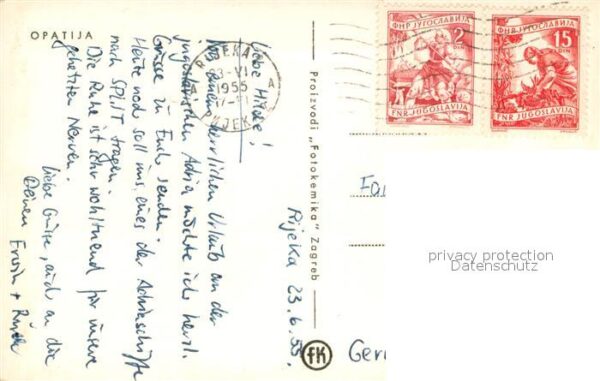 OPATIJA
Rijeka 23.6.55.
Liebe Hilde!
Von einem herrlichen Urlaub an der
jugoslawischen Adria möchte ich herzl.
Grüsse zu Euch senden.
Heute noch soll uns eines der Adriaschiffe
nach SPLIT tragen.
Die Ruhe ist sehr wohltuend für unsere
gehetzten Nerven.
Liebe Grüsse, auch an die
Deinen Erwin +
RIJEKA
VI
1955
RIJEKA
ФНР ЈУГОСЛАВИЈА
2
FNR JUGOSLAVIJA
ФНР ЈУГОСЛАВИЈА
15
FNR JUGOSLAVIJA
Proizvodi „Fotokemika" Zagreb
fK
Fa
Ger
privacy protection
Datenschutz